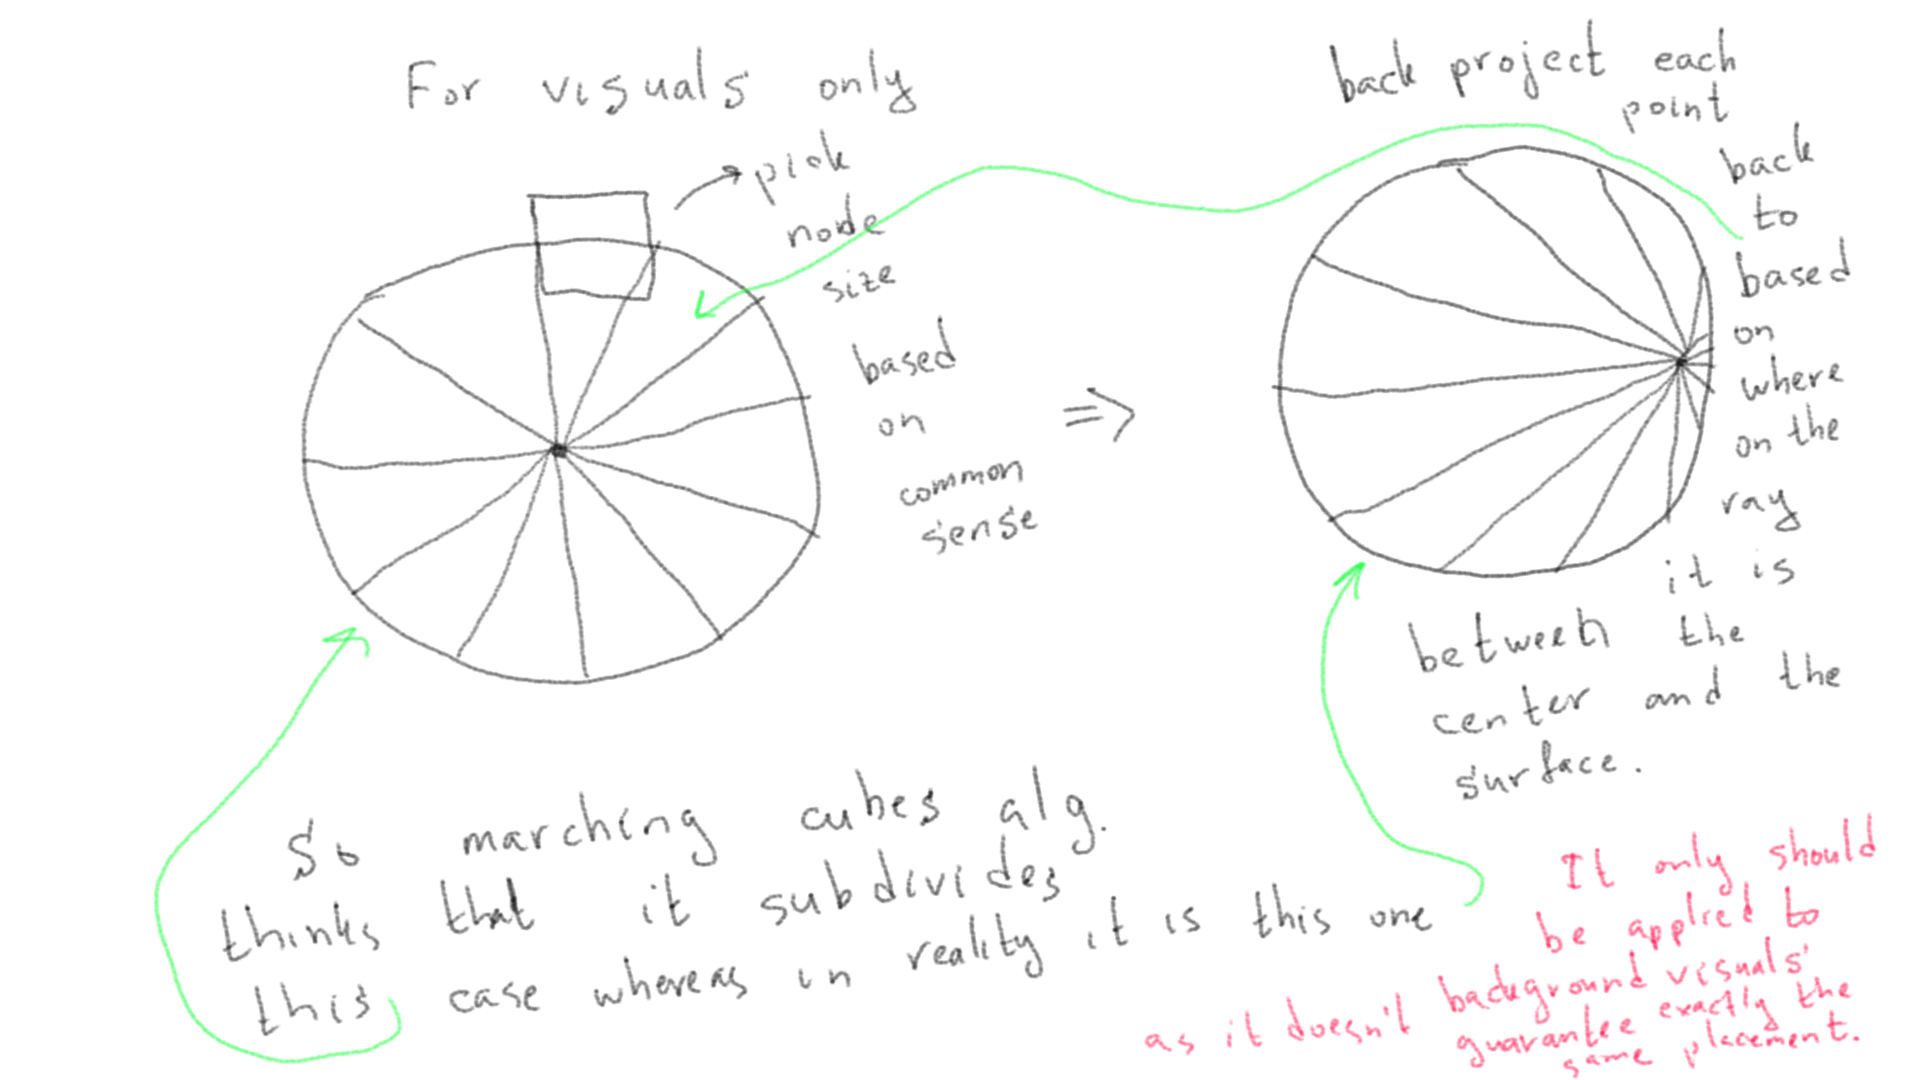 For visuals only
pick
node
size
based
on
common
sense
=>
back project each
point
back
to
based
on
where
on the
ray
it is
between the
center and the
surface.
So marching cubes alg.
thinks that it subdivides
this case whereas in reality it is this one
It only should
be applied to
background visuals
as it doesn't guarantee exactly the
same placement.